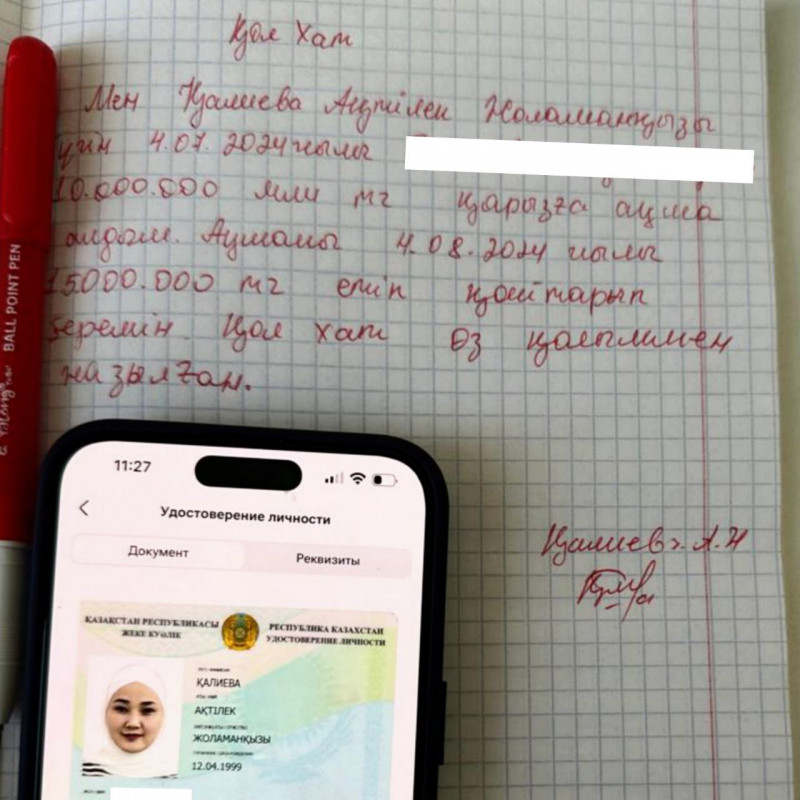 Қол Хат
Мен Қалиева Ақтілек Жоламанқызы
4.07.2024 жылы
10.000.000 млн тг қарызға ақша
алдым. Ақшаны 4.08.2024 жылы
15000.000 тг етіп қайтарып
беремін. Қол хат өз қолыммен
жазылған.
Қалиева.А.Ж
BALL POINT PEN
11:27
Удостоверение личности
Документ
Реквизиты
ҚАЗАҚСТАН РЕСПУБЛИКАСЫ
ЖЕКЕ КУӘЛІК
РЕСПУБЛИКА КАЗАХСТАН
УДОСТОВЕРЕНИЕ ЛИЧНОСТИ
ҚАЛИЕВА
АҚТІЛЕК
ЖОЛАМАНҚЫЗЫ
12.04.1999